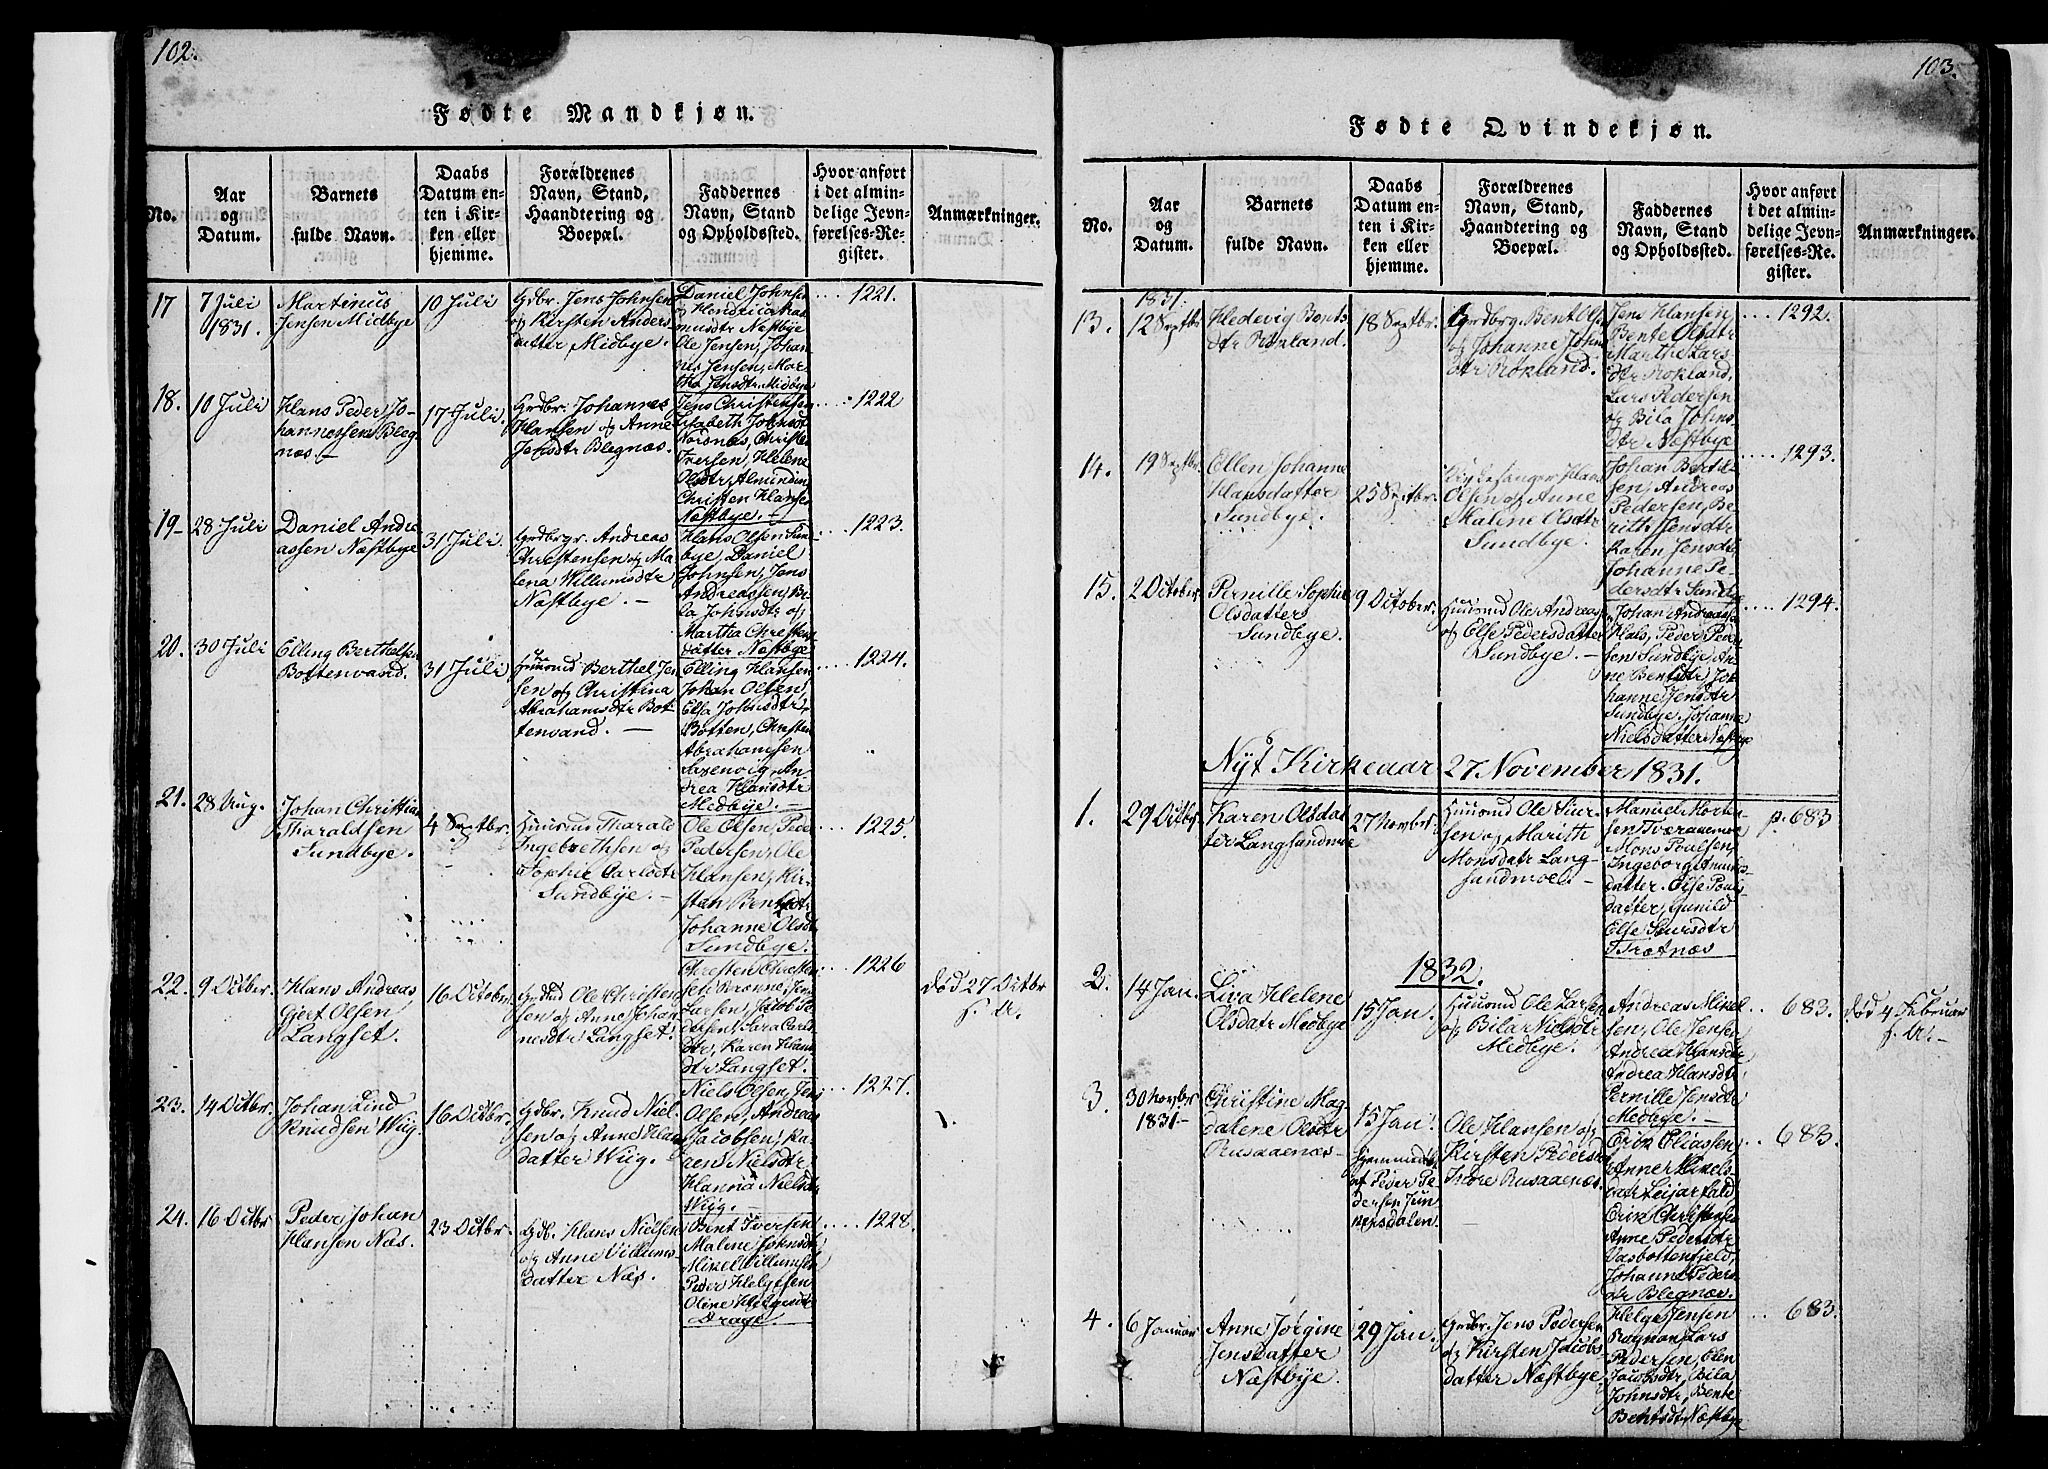 102.
Fødte Mandkjøn.
No.
Aar
og
Datum.
Barnets
fulde Navn.
Daabs
Datum en-
ten i Kir-
ken eller
hjemme.
Forældrenes
Navn, Stand,
Haandtering og
Boepæl.
Faddernes
Navn, Stand
og Opholdssted.
Hvor anført
i det almin-
delige Jevn-
førelses-Re-
gister.
Anmærkninger.
17
7 Juli
1831.
Martinus
Jensen Midbye
10 Juli
Gdbr. Jens Johnsen
og Kirsten Anders
datter Midbye.
Daniel Johnsen
Næstbye
Ole Jensen, Johan-
nes Jensen, Mar-
tha Jensdtr Midbye
1221.
18.
10 Juli
Hans Peder Jo-
hannessen Bleg
næs.
17 Juli
Grdbr. Johannes
Hansen og Anne
Jensdtr Blegnæs.
Jens Christensen
Elsabeth Johnsdtr
Christen
Iversen, Helene
Olsdtr Almindin
Christen Hansen
Næstbye.
1222
19
28 Juli
Daniel Andre
assen Næstbye
31 Juli.
Grdbrgr. Andreas
Christensen og Ma
lena Willumsdtr
Næstbye.
Hans Olsen Sun
bye, Daniel
Johnsen, Jens
Andreassen, Be
la Johnsdtr og
Martha Christens
datter Næstbye
1223.
20.
30 Juli
Elling Berthelsen
Bottenvand.
31 Juli
Huusmd Berthel Jen
sen og Christina
Abrahamsdtr Bot
tenvand.
Elling Hansen
Johan Olsen,
Elsa Johnsdtr
Botten, Christen
Abrahamsen
Laxenvig, An
drea Hansdtr
Medbye.
1224.
21.
28 Aug.
Johan Christian
Tharaldsen
Sundbye.
4 Septbr.
Huusmd Tharald
Ingebrethsen og
Sophie Carlsdtr
Sundbye.
Ole Olsen, Peder
Pedersen, Ole
Hansen, Kir-
sten Bentsdtr
Johanne Olsdtr
Sundbye.
1225.
22.
9 Octbr.
Hans Andreas
Gjert Olsen
Langset.
16 Octobr.
Grdmd Ole Christen
sen og Anne Johan
nesdtr Langset.
Christen Christen
sen Brønne, Jens
Larsen, Jacob Pe
dersen, Sara Carls
dtr, Karen Hans
dtr Langset.
1226
død 27 Octbr
s. A.
23.
14 Octbr.
Johan Lind
Knudsen Wiig.
16 Octbr.
Gdbr. Knud Niel-
sen og Anne Hans
datter Wiig.
Niels Olsen, Jens
Olsen, Andreas
Jacobsen, Ka-
ren Nielsdtr
Hanna Nielsdtr
Wiig.
1227.
24.
16 Octbr
Peder Johan
Hansen Næs.
23 Octbr.
Gdb. Hans Nielsen
og Anne Villums-
datter Næs.
Bent Iversen
Malene Johnsdtr
Mikel Villumsen
Peder Helgesen
Oline Helgesdtr
Drage.
1228.
103.
Fødte Qvindekjøn.
No.
Aar
og
Datum.
Barnets
fulde Navn.
Daabs
Datum en-
ten i Kir-
ken eller
hjemme.
Forældrenes
Navn, Stand,
Haandtering og
Boepæl.
Faddernes
Navn, Stand
og Opholdssted.
Hvor anført
i det almin-
delige Jevn-
førelses-Re-
gister.
Anmærkninger.
13.
1831.
12 Septbr.
Hedevig Bents
dtr Rokland.
18 Septbr.
Grdbrg. Bent Olsen
og Johanne John
dtr Rokland.
Jens Hansen,
Bente Olsdtr
Marthe Lars-
dtr Rokland,
Lars Pedersen
og Bila Johns
dtr Næstbye
1292.
14.
19 Septbr.
Ellen Johanne
Hansdatter
Sundbye.
25 Septbr.
Kirkesanger Hans
Olsen og Anne
Maline Olsdtr
Sundbye.
Johan Bertel-
sen, Andreas
Pedersen, Be
rith Jensdtr
Karen Jensdtr
Johanne Pe-
dersdtr Sundbye
1293.
15.
2 October.
Pernille Sophie
Olsdatter
Sundbye.
9 October.
Huusmd Ole Andreas
og Else Pedersdatter
Sundbye.
Johan Andreas
Hals, Peder Peder
sen Sundbye, An
ne Bentsdtr, Jo
hanne Jensdtr
Sundbye, Johanne
Nielsdatter Næstbye
1294.
Nyt Kirkeaar 27 November 1831.
1.
29 Octbr.
Karen Olsdat
ter Langsandmoe
27 Novbr.
Huusmd Ole Siur-
sen og Marith
Monsdatr Lang-
sandmoe.
Manuel Morten
sen Tveraamoe
Mons Poulsen,
Ingeborg Amunds
datter, Else Pouls
datter, Gunild
Else Siursdtr
Trætnæs
p. 683
2.
1832.
14 Jan.
Liva Helene
Olsdatr Medbye
15 Jan.
Huusmd Ole Larsen
og Bila Nielsdtr
Medbye.
Andreas Mikel
sen, Ole Jensen
Andrea Hansdtr
Andrea Hansdtr
Pernille Jensdtr
Medbye.
683.
død 4 Februar
s. A.
3.
30 Novbr
1831
Christine Mag
dalene Olsdtr
Rusaaenæs
15 Jan.
Hjemmedøbt
af Peder Pe
dersen Jun
kersdalen.
Ole Hansen og
Kirsten Pedersdtr
Indre Rusaaenæs.
Erik Eliassen
Anne Mikels-
datr Leijarfald
Erik Christensen
Anne Pedersdtr
Vasbottenfield,
Johanne Peders
dtr Blegnæs.
683.
4.
6 Januar
Anne Jørgine
Jensdatter
Næstbye.
29 Jan.
Grdbr. Jens Pedersen
og Kirsten Jacobs
datter Næstbye.
Helge Jensen
Rognan, Lars
Pedersen, Elen
Jacobsdtr, Bila
Johnsdtr, Bente
Bentsdtr Næstbye
683.